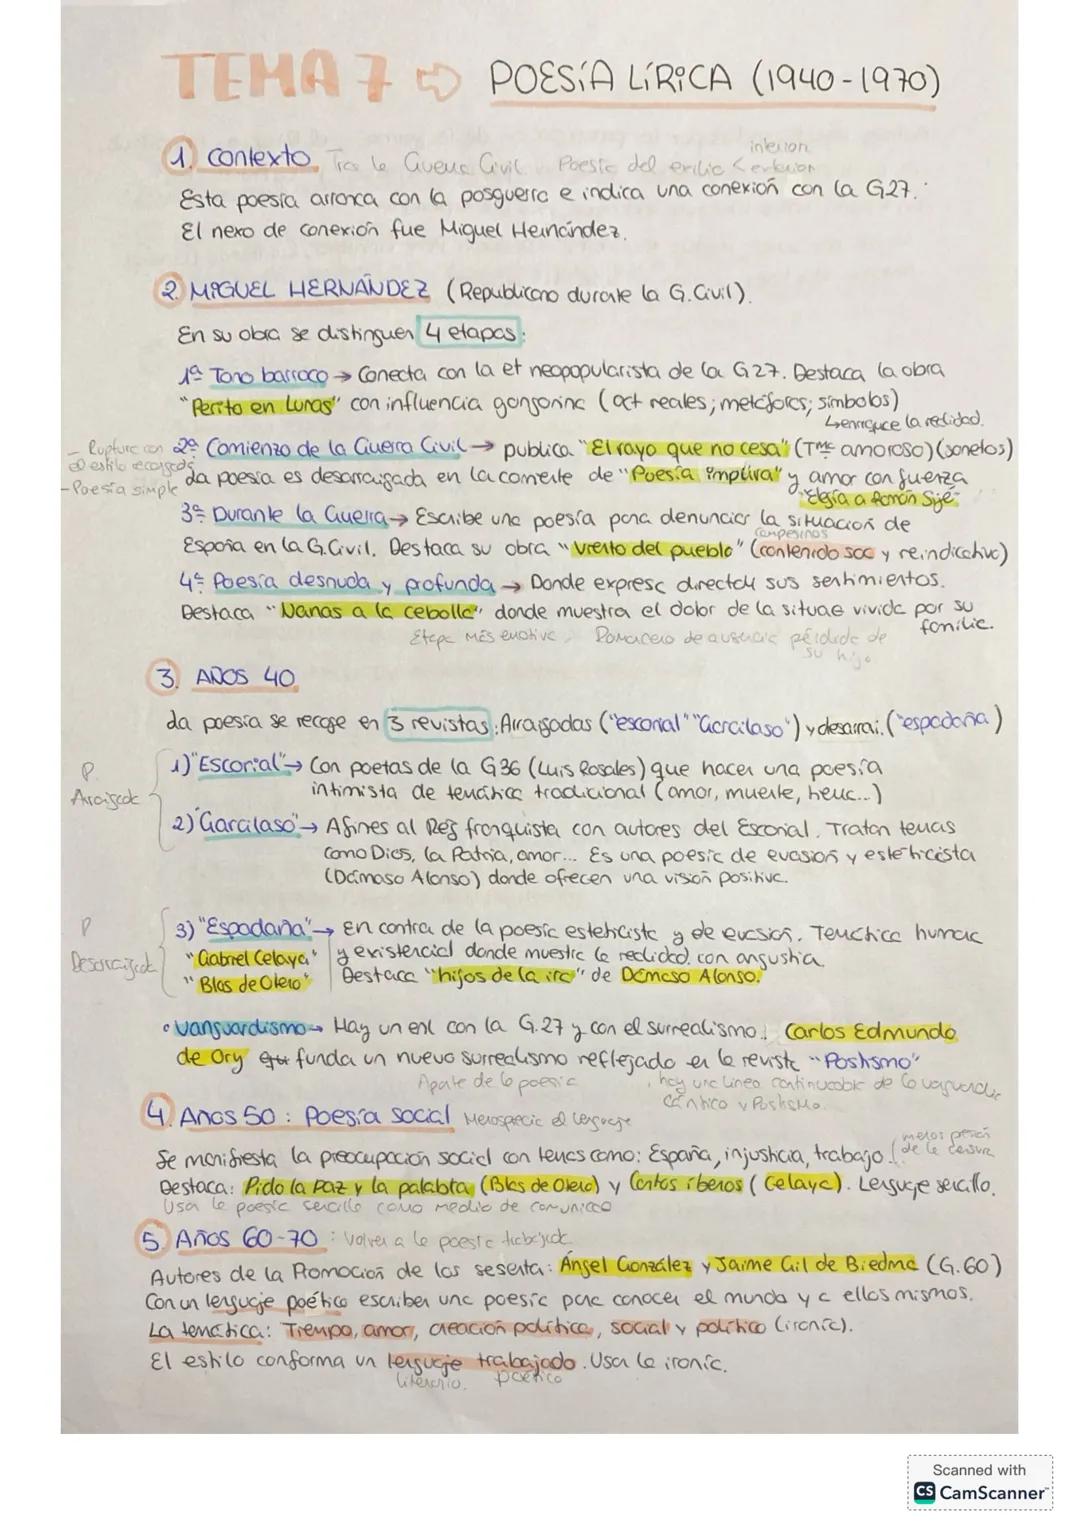 TEMA 7 ⇨ POESÍA LÍRICA (1940-1970)
1. Contexto. Tras la Guerra Civil. Poesía del exilio < interior exterior
Esta poesía arranca con la posguerra e indica una conexión con la G27.
El nexo de conexión fue Miguel Hernández.
2. MIGUEL HERNÁNDEZ (Republicano durante la G.Civil).
En su obra se distinguen 4 etapas:
1ª Tono barroco → Conecta con la et neopopularista de la G27. Destaca la obra
"Perito en Lunas" con influencia gongorina (oct reales; metáforas; símbolos)
↳enriquece la realidad.
- Ruptura con el estilo recargado
- Poesía simple
2ª Comienzo de la Guerra Civil → publica "El rayo que no cesa" (Tᵐᵃ amoroso) (sonetos)
La poesía es desarraigada en la corriente de "Poesía impura" y amor con fuerza
"Elegía a Ramón Sijé"
3ª Durante la Guerra → Escribe una poesía para denunciar la situación de
campesinos
España en la G.Civil. Destaca su obra "Viento del pueblo" (contenido soc y reindicativo)
4ª Poesía desnuda y profunda → Donde expresa directa sus sentimientos.
Destaca "Nanas a la cebolla" donde muestra el dolor de la situac vivida por su familia.
Etapa más emotiva. Romancero de ausencia pérdida de su hijo
3. AÑOS 40
La poesía se recoge en 3 revistas: Arraigadas ("escorial" "Garcilaso") y desarrai. ("espadaña")
P. Arraigada
1) "Escorial" → Con poetas de la G36 (Luis Rosales) que hacen una poesía
intimista de temática tradicional (amor, muerte, heuc...)
2) "Garcilaso" → Afines al Reg franquista con autores del Escorial. Tratan temas
como Dios, la Patria, amor... Es una poesía de evasión y esteticista
(Dámaso Alonso) donde ofrecen una visión positiva.
P Desarraigada
3) "Espadaña" → En contra de la poesía esteticista y de evasión. Temática humana
"Gabriel Celaya" y existencial donde muestra la realidad con angustia.
"Blas de Otero" Destaca "hijos de la ira" de Dámaso Alonso.
• Vanguardismo → Hay un enl con la G.27 y con el surrealismo. Carlos Edmundo
de Ory funda un nuevo surrealismo reflejado en la revista "Postismo"
Aparte de la poesía , hay una línea continuable de la vanguardia
Cántico y Postismo.
4. Años 50: Poesía social Menosprecia el lenguaje
Se manifiesta la preocupación social con temas como: España, injusticia, trabajo. (menos presión de la censura
Destaca: Pido la paz y la palabra (Blas de Otero) y Cantos íberos (Celaya). Lenguaje sencillo.
Usan la poesía sencilla como medio de comunicac
5. Años 60-70: Volver a la poesía trabajada
Autores de la Promoción de los sesenta: Ángel González y Jaime Gil de Biedma (G.60)
Con un lenguaje poético escriben una poesía para conocer el mundo y a ellos mismos.
La temática: Tiempo, amor, creación política, social y político (ironía).
El estilo conforma un lenguaje trabajado. Usan la ironía.
literario. poético
Scanned with
CS CamScanner